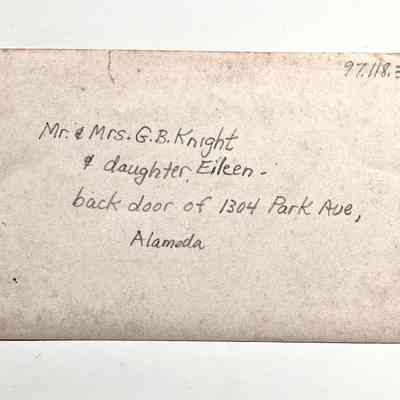 97.118.3
Mr. & Mrs. G.B. Knight
& daughter, Eileen -
back door of 1304 Park Ave,
Alameda